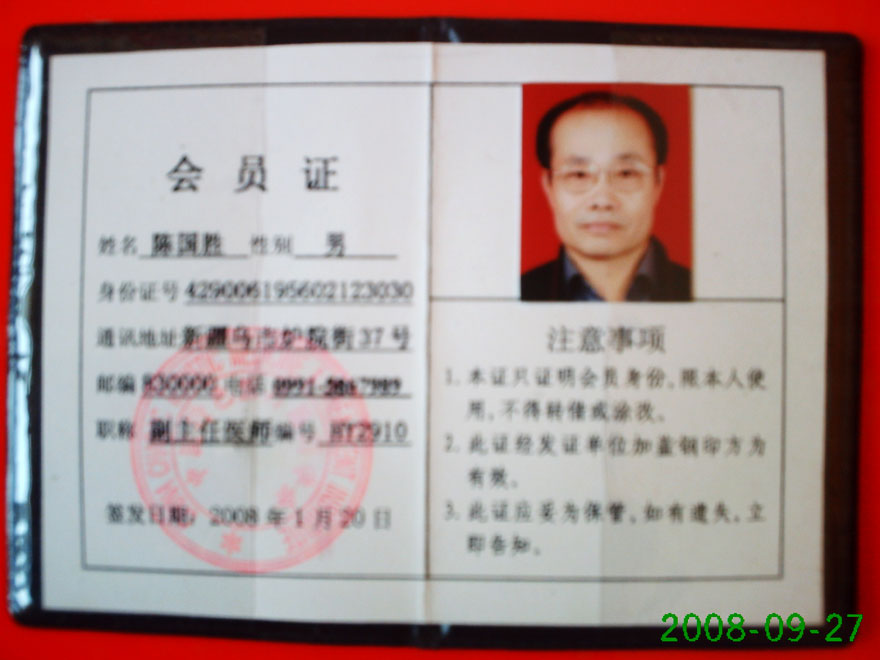 会员证
姓名 陈国胜 性别 男
身份证号 429006195602123030
通讯地址 新疆乌市炉院街37号
邮编 830000 电话 0991-
职称 副主任医师 编号 HY2910
签发日期：2008年1月20日
注意事项
1. 本证只证明会员身份，限本人使
用，不得转借或涂改。
2. 此证经发证单位加盖钢印方为
有效。
3. 此证应妥为保管，如有遗失，立
即告知。
2008-09-27